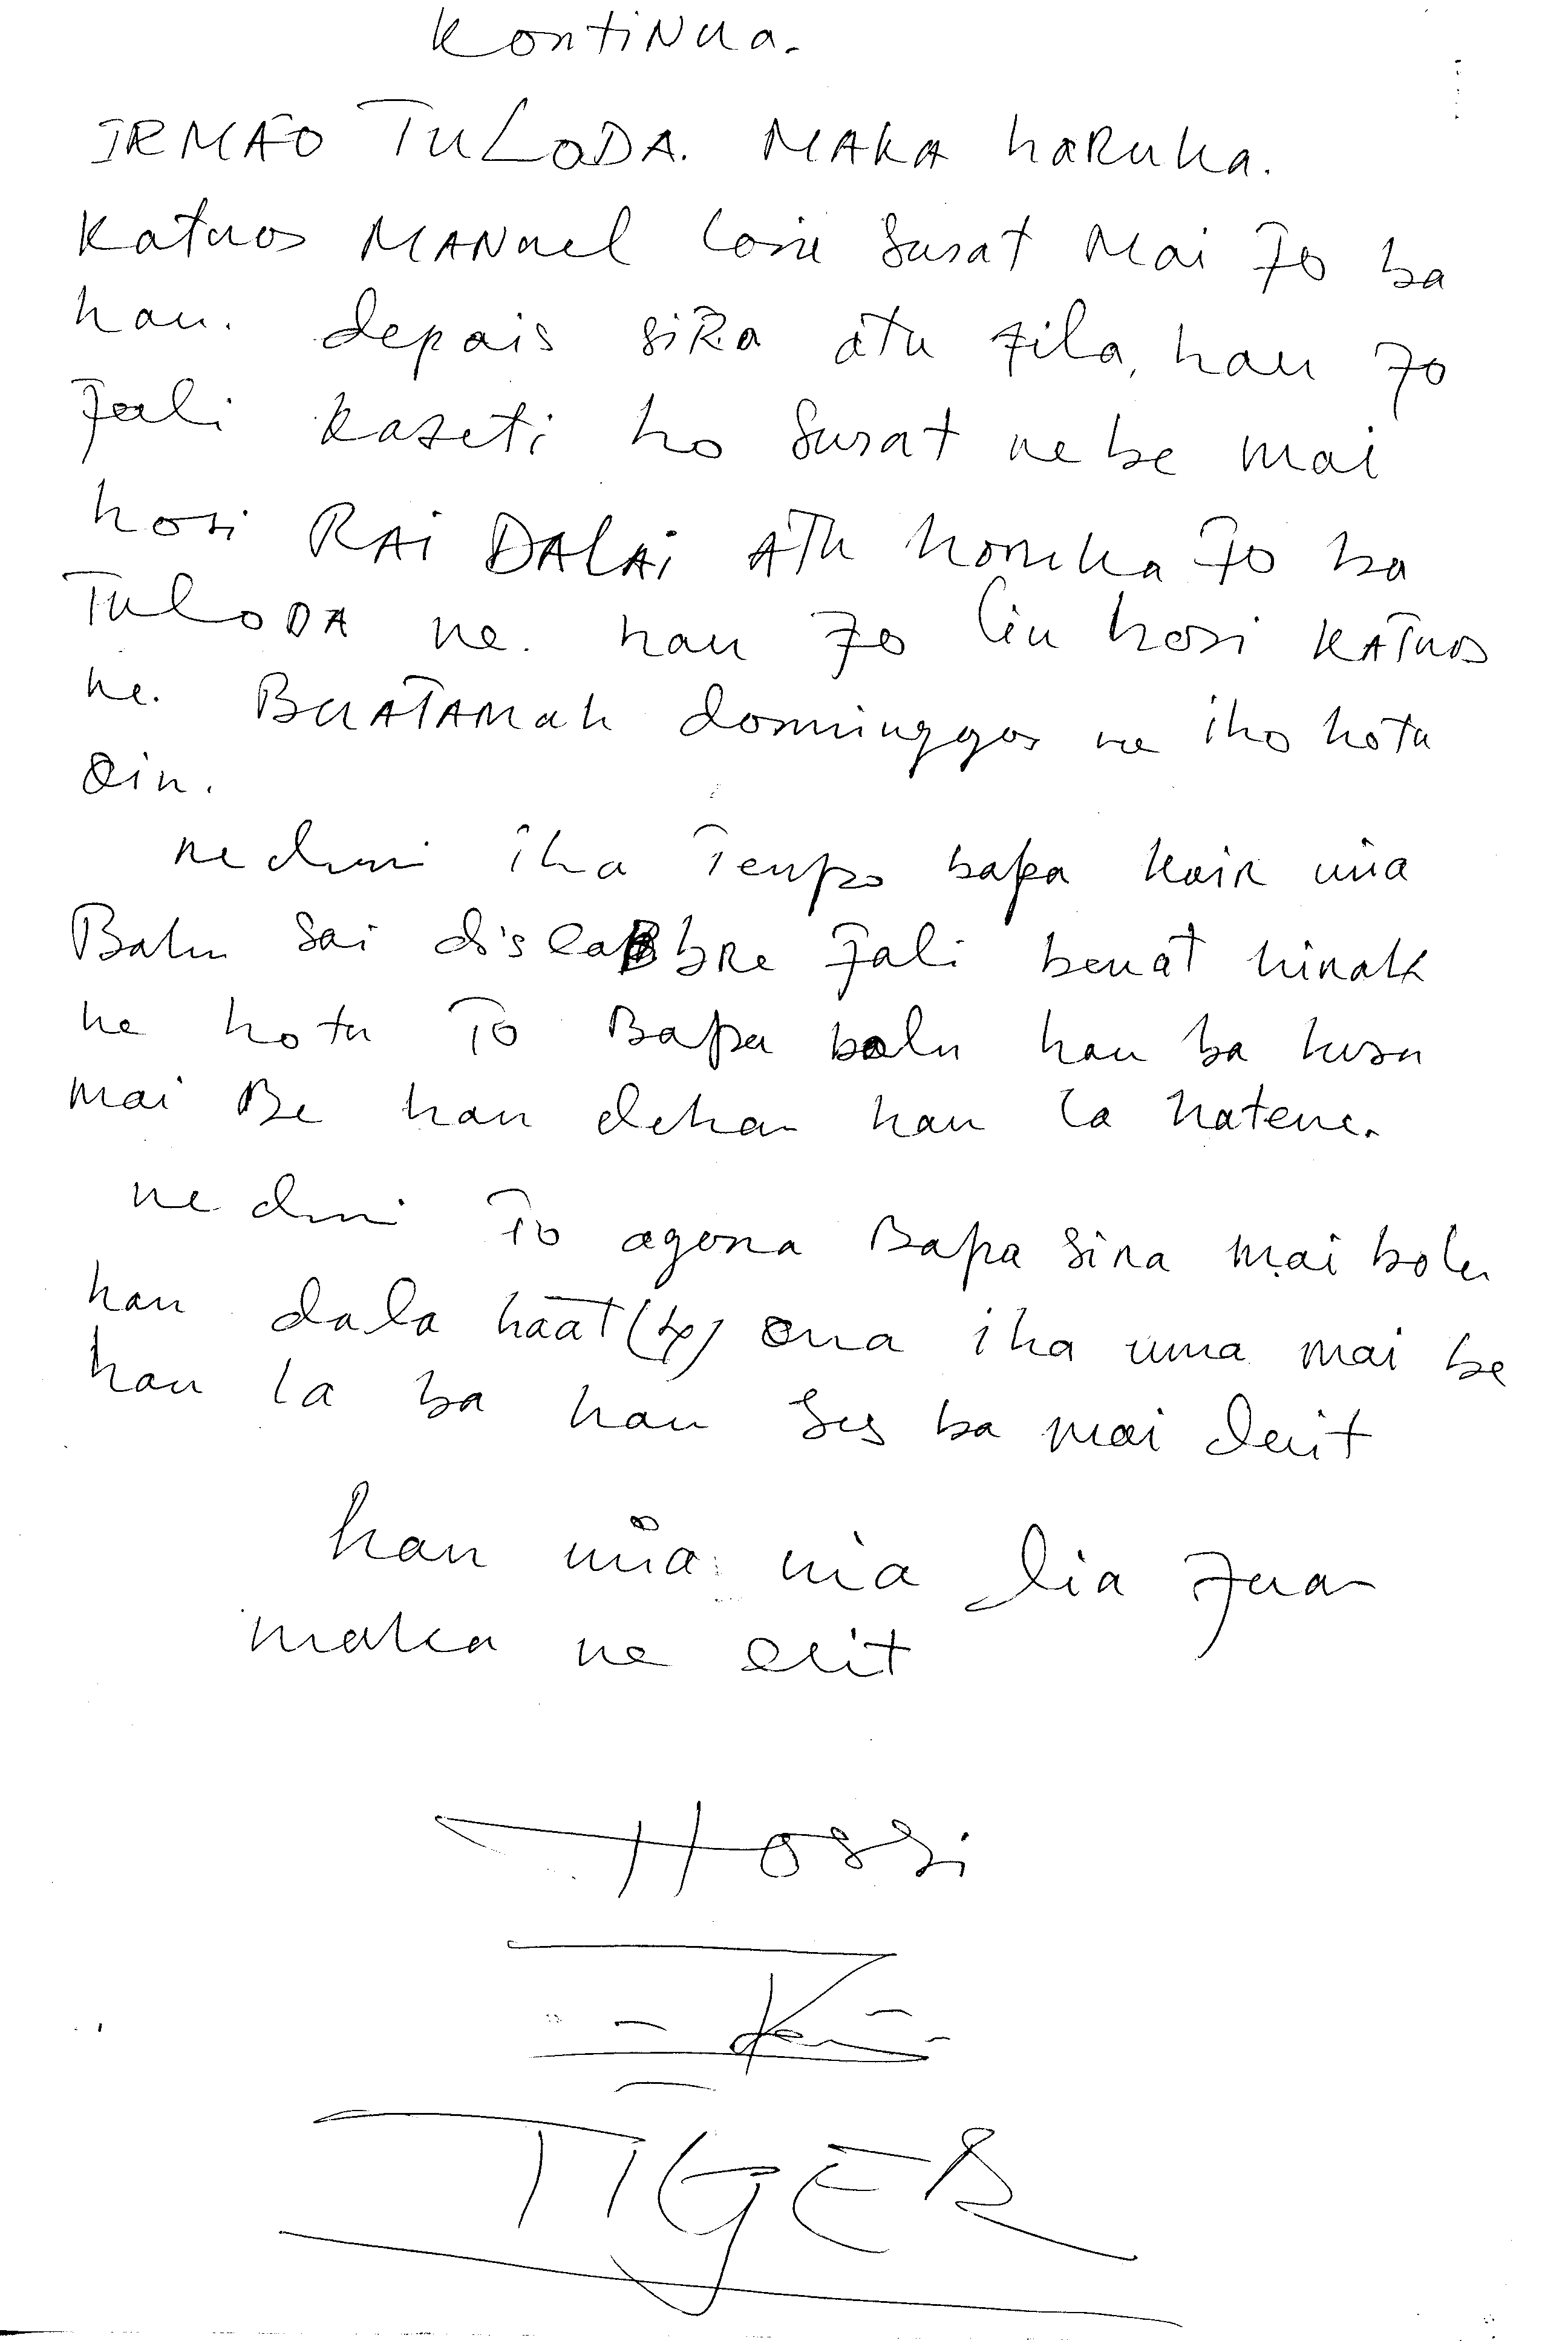 Kontinua.
IRMÃO TULODA. MAKA haRuka.
Katuos MANuel lorie surat Mai fo ba
hau. depois siRa atu fila, hau fo
fali kaseti ho surat nebe mai
hosi RAi DALAi ATu haruka fo ba
TuloDA ne. hau fo liu hosi KATuos
ne. BuATAMAh dominggos ne iho hotu
Oin.
ne duni iha Tempo bapa kair nia
Balu sai dislabre fali benat hirak
ne hotu To Bapa bolu hau ba husu
mai Be hau dehan hau la hatene.
ne duni To agora Bapa sira mai bolu
hau dala haat (4) ona iha uma mai be
hau la ba hau ses ba mai deit
hau nia nia lia fuan
maka ne deit
Hossi
TIGER